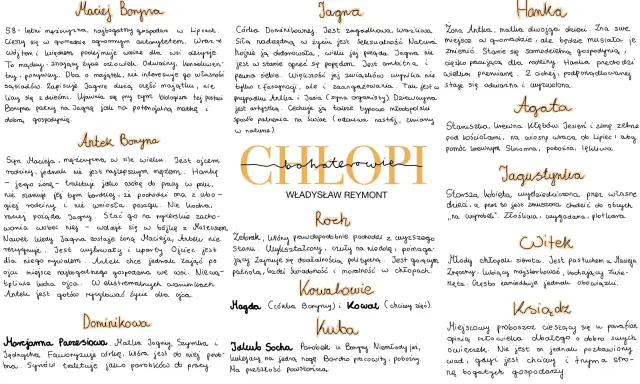 Maciej Boryna
58-letni mężczyzna, najbogatszy gospodarz w Lipcach.
Cieszy się w gromadzie ogromnym autorytetem. Wraz z
wójtem i księdzem podejmuje ważne dla wsi decyzje.
To mądry, znający życie człowiek. Odważny, konsekwen-
tny, porywczy. Dba o majątek, nie interesuje go własność
sąsiadów. Zapisuje Jagnie dużą część majątku, nie
licząc się z dziećmi. Ujawnia się przy tym biologizm tej postaci
Boryna patrzy na Jagnę jak na potencjalną matkę i
dobrą gospodynię.
Antek Boryna
Syn Macieja, mężczyzna w sile wieku. Jest ojcem
rodziny, jednak nie jest najlepszym mężem. Hankę
- jego żonę - traktuje jako osobę do pracy w polu,
nie szanuje jej tym bardziej, że pochodzi ona z ubo-
giej rodziny i nie wniosła posagu. Nie kocha,
raczej pożąda Jagny. Stać go na rycerskie zacho-
wania wobec niej - wdaje się w bójkę z Mateuszem.
Nawet kiedy Jagna zostaje żoną Macieja, Antek nie
rezygnuje. Jest wybuchowy i uparty. Ojciec jest
dla niego rywalem. Antek chce jednak zająć po
ojcu miejsce najbogatszego gospodarza we wsi. Niewą-
tpliwie kocha ojca. W ekstremalnych warunkach
Antek jest gotów ryzykować życie dla ojca.
Dominikowa
Marcjanna Paczesiowa. Matka Jagny, Szymka i
Jędrzycha. Faworyzuje córkę, która jest do niej podo-
bna. Synów traktuje jako parobków do pracy.
Jagna
Córka Dominikowej. Jest zagadkowa, wrażliwa
Siłą nadrzędną w życiu jest seksualność. Natura
hojnie ją obdarowała, wielu jej pożąda. Jagna nie
jest w stanie oprzeć się popędom. Jest ambitna i
pewna siebie. Większość jej związków wynika nie
tylko z fascynacji, ale i zaangażowania. Tak jest w
przypadku Antka i Jasia (syna organisty). Dziewczyna
jest artystką. Cechuje ją także typowo młodopolski
sposób patrzenia na świat (odczuwa nastrój, zmiany
w naturze).
CHŁOPI
bohaterowie
WŁADYSŁAW REYMONT
Roch
Żebrak, który prawdopodobnie pochodzi z wyższego
stanu. Wykształcony, czuły na niedolę, pomaga-
jący. Zajmuje się działalnością polityczną. Jest gorącym
patriotą, budzi świadomość i moralność w chłopach.
Kowalowie
Magda (córka Boryny) i Kowal (chciwy zięć).
Kuba
Jakub Socha. Parobek u Boryny. Niemłody już,
kulejący na jedną nogę. Bardzo pracowity, pobożny.
Ma przeszłość powstańczą.
Hanka
Żona Antka, matka dwojga dzieci. Zna swe
miejsce w gromadzie, ale będzie musiała je
zmienić. Stanie się samodzielną gospodynią,
ciężko pracującą dla rodziny. Hanka przechodzi
wielką przemianę. Z cichej, podporządkowanej
staje się odważna i wyzwolona.
Agata
Staruszka, krewna Kłębów. Jesień i zimę żebrze
pod kościołami, na wiosnę wraca do Lipiec, aby
pomóc krewnym. Skromna, pobożna, lękliwa.
Jagustynka
Starsza kobieta, wydziedziczona przez własne
dzieci, a przez to jest zmuszona chodzić do obcych
„na wyrobek”. Złośliwa, wygadana, plotkara.
Witek
Młody chłopak, sierota. Jest pastuchem u Macieja
Boryny, lubiący majsterkować, kochający zwie-
rzęta. Często zaniedbuje jednak obowiązki.
Ksiądz
Miejscowy proboszcz cieszący się u parafian
opinią człowieka dbałego o dobro swych
owieczek. Nie jest on jednak pozbawiony
wad, gdyż jest chciwy i trzyma stro-
nę bogatych gospodarzy.